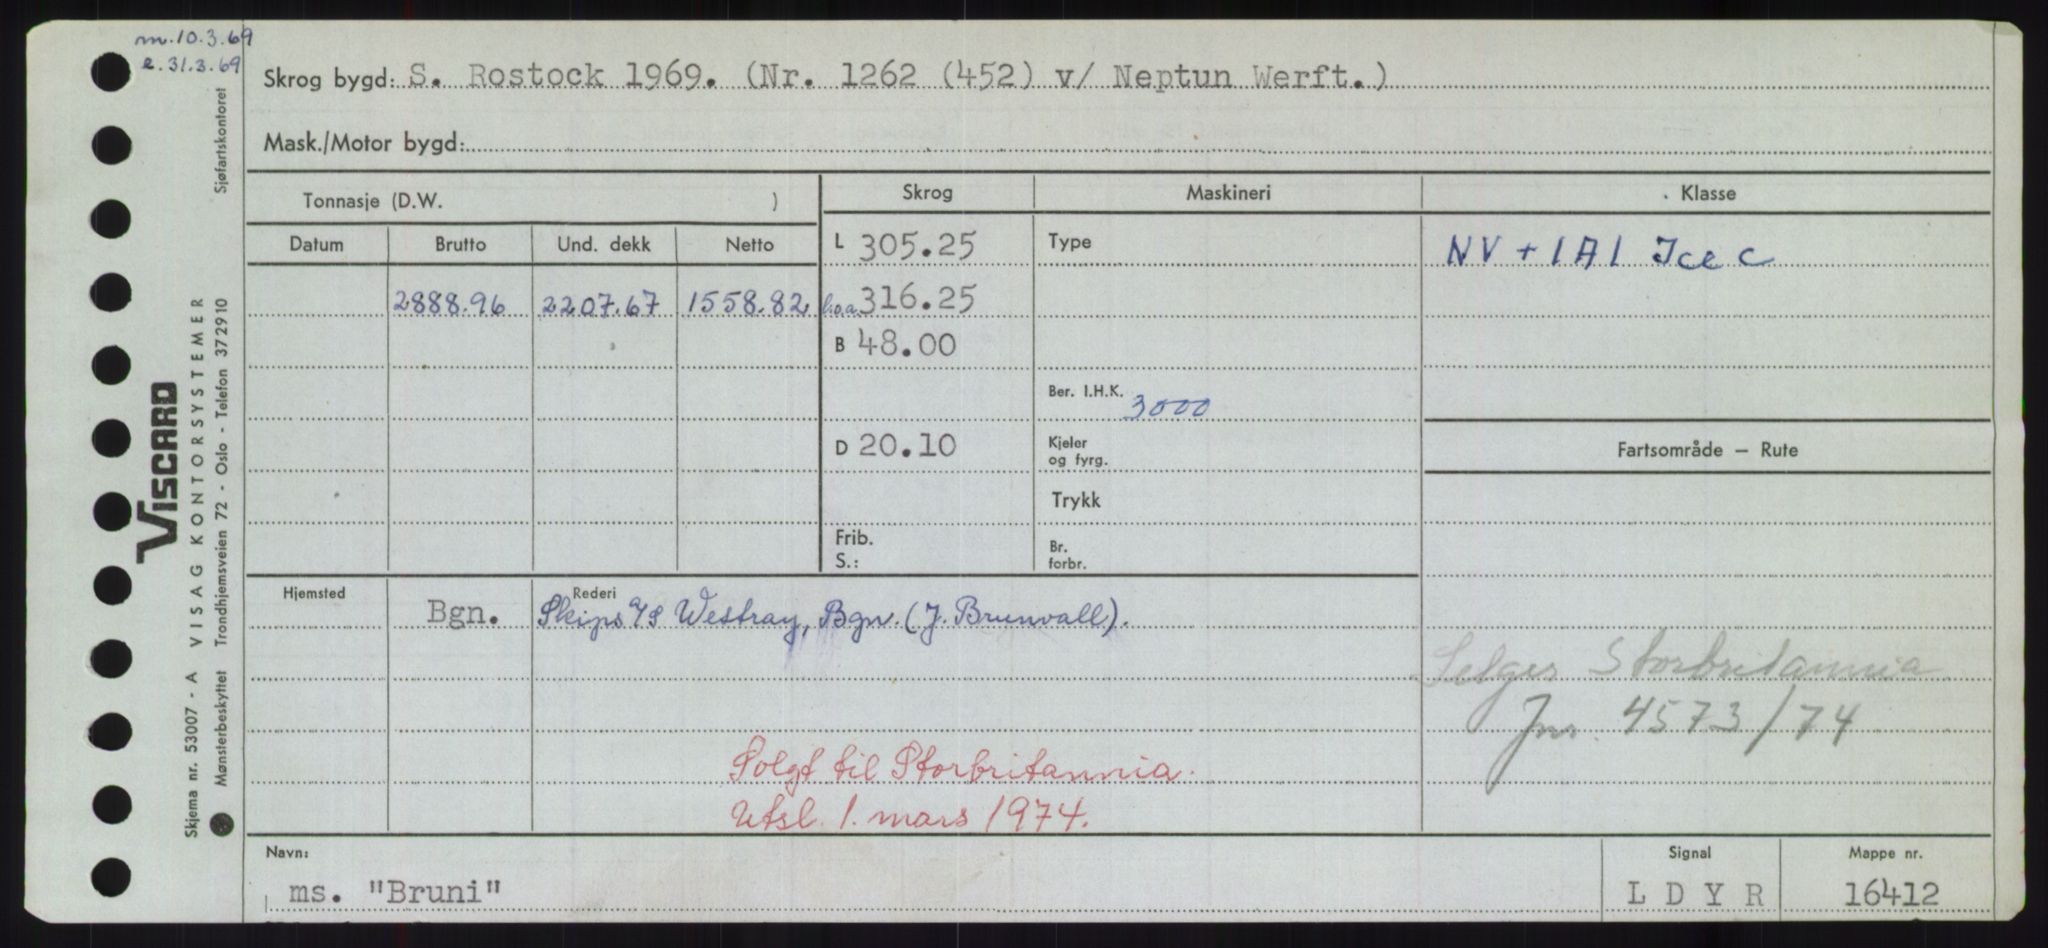 m. 10.3.69
e. 31.3.69
Skrog bygd: S. Rostock 1969. (Nr. 1262 (452) v/ Neptun Werft.)
Mask./Motor bygd:
Tonnasje (D.W. )
Skrog
Maskineri
Klasse
Datum
Brutto
Und. dekk
Netto
L 305.25
Type
NV + 1A1 Ice C
2888.96
2207.67
1558.82
l.o.a. 316.25
B 48.00
Ber. I.H.K. 3000
D 20.10
Kjeler
og fyrg.
Fartsområde – Rute
Trykk
Frib.
S.:
Br.
forbr.
Hjemsted
Bgn.
Rederi
Skips A/S Westray, Bgn. (J. Brunvall).
Selges Storbritannia
Jnr. 4573/74
Solgt til Storbritannia.
Utsl. 1. mars 1974.
Navn:
ms. "Bruni"
Signal
L D Y R
Mappe nr.
16412
VISCARD
Skjema nr. 53007 - A VISAG KONTORSYSTEMER
Mønsterbeskyttet Trondhjemsveien 72 - Oslo - Telefon 372910 Sjøfartskontoret